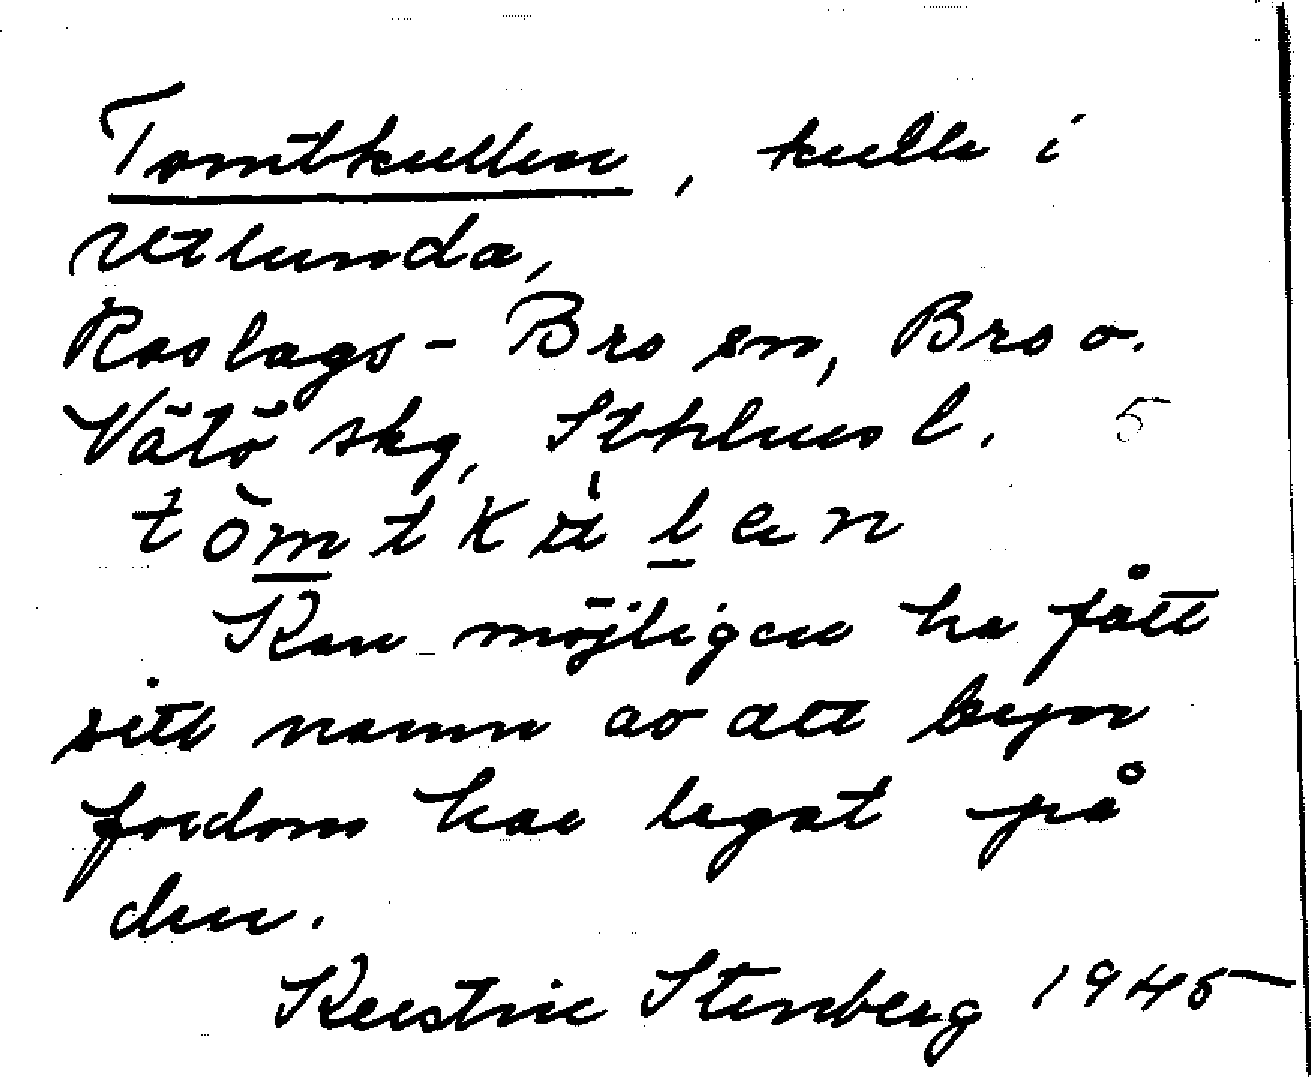 Tomtkullen, kulle i
Utlunda,
Roslags-Bro sn, Bro o.
Vätö skg, Sthlms l. 5
tòmtkùlen
Kan möjligen ha fått
sitt namn av att byn
fordom har legat på
den.
Kerstin Stenberg 1945